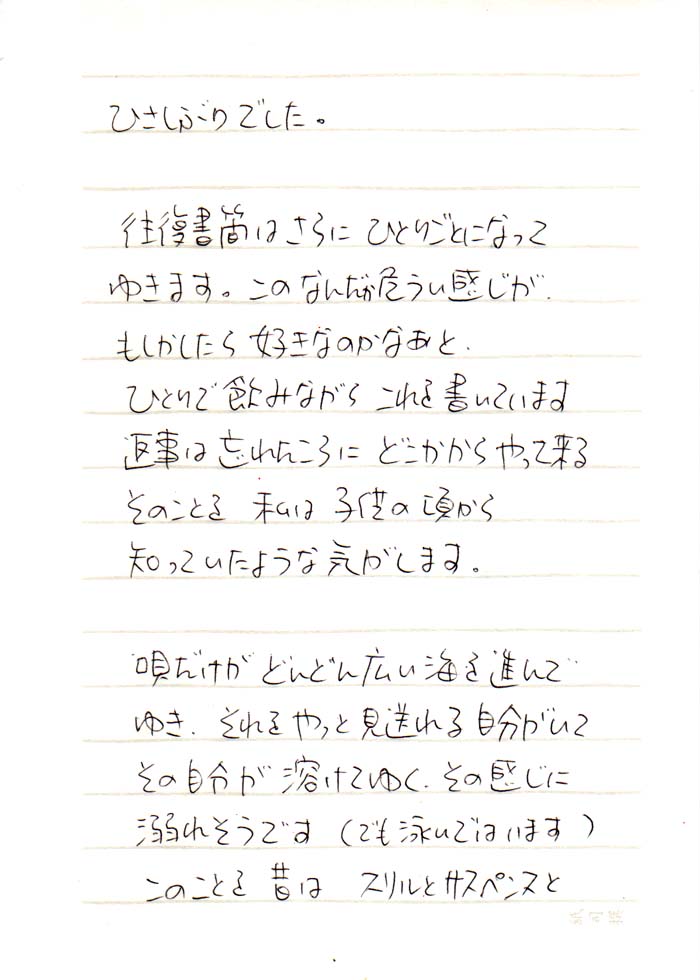 ひさしぶりでした。
往復書簡はさらにひとりごとになって
ゆきます。このなんだか危うい感じが、
もしかしたら好きなのかなあと、
ひとりで飲みながらこれを書いています
返事は忘れたころにどこかからやって来る
そのことを私は子供の頃から
知っていたような気がします。
唄だけがどんどん広い海を進んで
ゆき、それをやっと見送れる自分がいて
その自分が溶けてゆく、その感じに
溺れそうです(でも泳いではいます)
このことを昔はスリルとサスペンスと